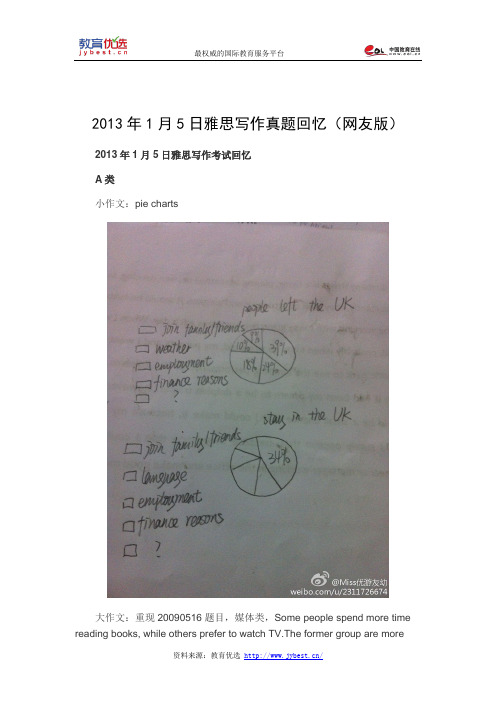 教育优选
jybest.cn
最权威的国际教育服务平台
eol 中国教育在线
www.eol.cn
2013年1月5日雅思写作真题回忆（网友版）
2013年1月5日雅思写作考试回忆
A类
小作文：pie charts
people left the UK
join family/friends
weather
employment
finance reasons
?
10%
39%
18%
24%
stay in the UK
join family/friends
language
employment
finance reasons
?
34%
@Miss优游友幼
weibo.com/u/2311726674
大作文：重现20090516题目，媒体类，Some people spend more time
reading books, while others prefer to watch TV.The former group are more
资料来源：教育优选 http://www.jybest.cn/